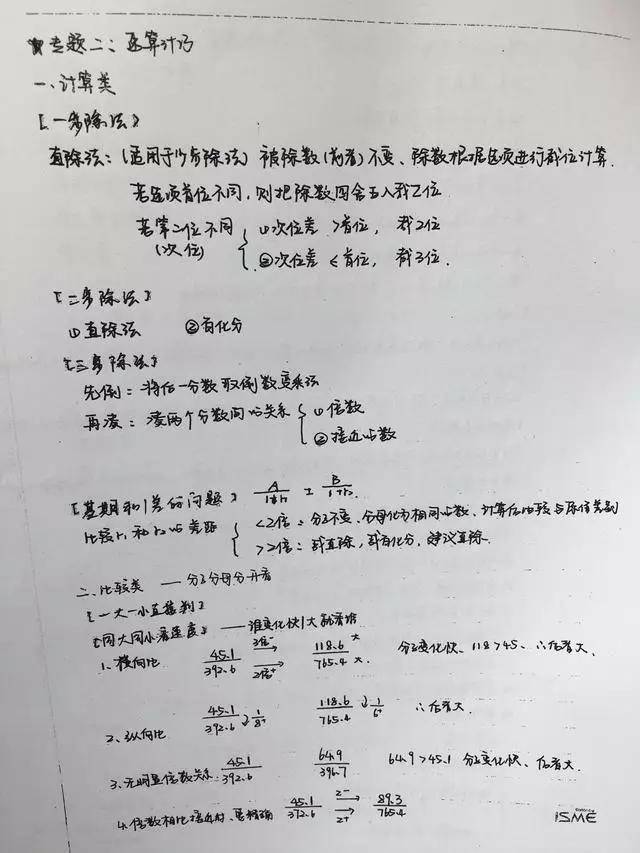 专题二：速算技巧
一、计算类
【一步除法】
直除法：(适用于少步除法) 被除数(前者)不变、除数根据选项进行截位计算.
若选项首位不同，则把除数四舍五入截2位
若第二位不同 ①次位差 >首位， 截2位
(次位) ②次位差 ≤首位， 截3位.
【二步除法】
①直除法 ②有化分
【三步除法】
先倒：将后一分数取倒数变乘法
再凑：凑两个分数间的关系 ①倍数
②接近的数
【基期和/差的问题】 A/(1+r₁) ± B/(1+r₂)
比较r₁和r₂的差距 <2倍：分子不变、分母化为相同的数、计算估比较与原值差别
>2倍：或直除，或有化分，建议直除.
二、比较类 —— 分子分母分开看
【一大一小直接判】
【同大同小看速度】 —— 谁变化快/大就看谁
1、横向比 45.1/392.6 3倍⁻ 2倍⁺ 118.6/765.4 大 大. 分子变化快、118>45、∴后者大.
2、纵向比 45.1/392.6 ↓1/8⁺ 118.6/765.4 ↓1/6⁺ ∴后者大.
3、无明显倍数关系： 45.1/392.6 64.9/396.7 64.9>45.1 分子变化快、后者大
4、倍数相比接近时、要精确 45.1/372.6 2⁻ 2⁺ 89.3/765.4
ISME